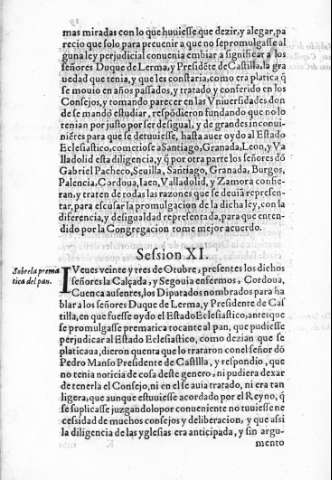 mas miradas con lo que huuiesse que dezir, y alegar, pa
recio que solo para preuenir a que no se promulgasse al
guna ley perjudicial conuenia embiar a significar a los
señores Duque de Lerma, y Presidẽte de Castilla, la gra
uedad que tenia, y que les constaria, como era platica q̃
se mouio en años passados, y tratado y conferido en los
Consejos, y tomando parecer en las Vniuersidades don
de se mandò estudiar, respõdieron fundando que no lo
tenian por justo por ser desigual, y de grandes inconui-
niẽtes para que se detuuiesse, hasta auer oydo al Estado
Eclesiastico, cometiose a Santiago, Granada, Leon, y Va
lladolid esta diligencia, y q̃ por otra parte los señores dõ
Gabriel Pacheco, Seuilla, Santiago, Granada, Burgos,
Palencia, Cordoua, Iaen, Valladolid, y Zamora confie-
ran, y traten de todas las razones que se deuiã represen-
tar, para escusar la promulgacion de la dicha ley, con la
diferencia, y desigualdad representada, para que enten-
dido por la Congregacion tome mejor acuerdo.
Session XI.
Sobre la prema
tica del pan.
IVeues veinte y tres de Otubre, presentes los dichos
señores la Calçada, y Segouia enfermos, Cordoua,
Cuenca ausentes, los Diputados nombrados para ha
blar a los señores Duque de Lerma, y Presidente de Cas
tilla, en que fuesse oydo el Estado Eclesiastico, antes que
se promulgasse prematica tocante al pan, que pudiesse
perjudicar al Estado Eclesiastico, como dezian que se
platicaua, dieron quenta que lo trataron con el señor dõ
Pedro Manso Presidente de Castilla, y respondio, que
no tenia noticia de cosa deste genero, ni pudiera dexar
de tenerla el Consejo, ni en el se auia tratado, ni era tan
ligera, que aunque estuuiesse acordado por el Reyno, q̃
se suplicasse juzgandolo por conueniente no tuuiesse ne
cessidad de muchos consejos y deliberacion, y que assi
la diligencia de las yglesias era anticipada, y sin argu-
mento